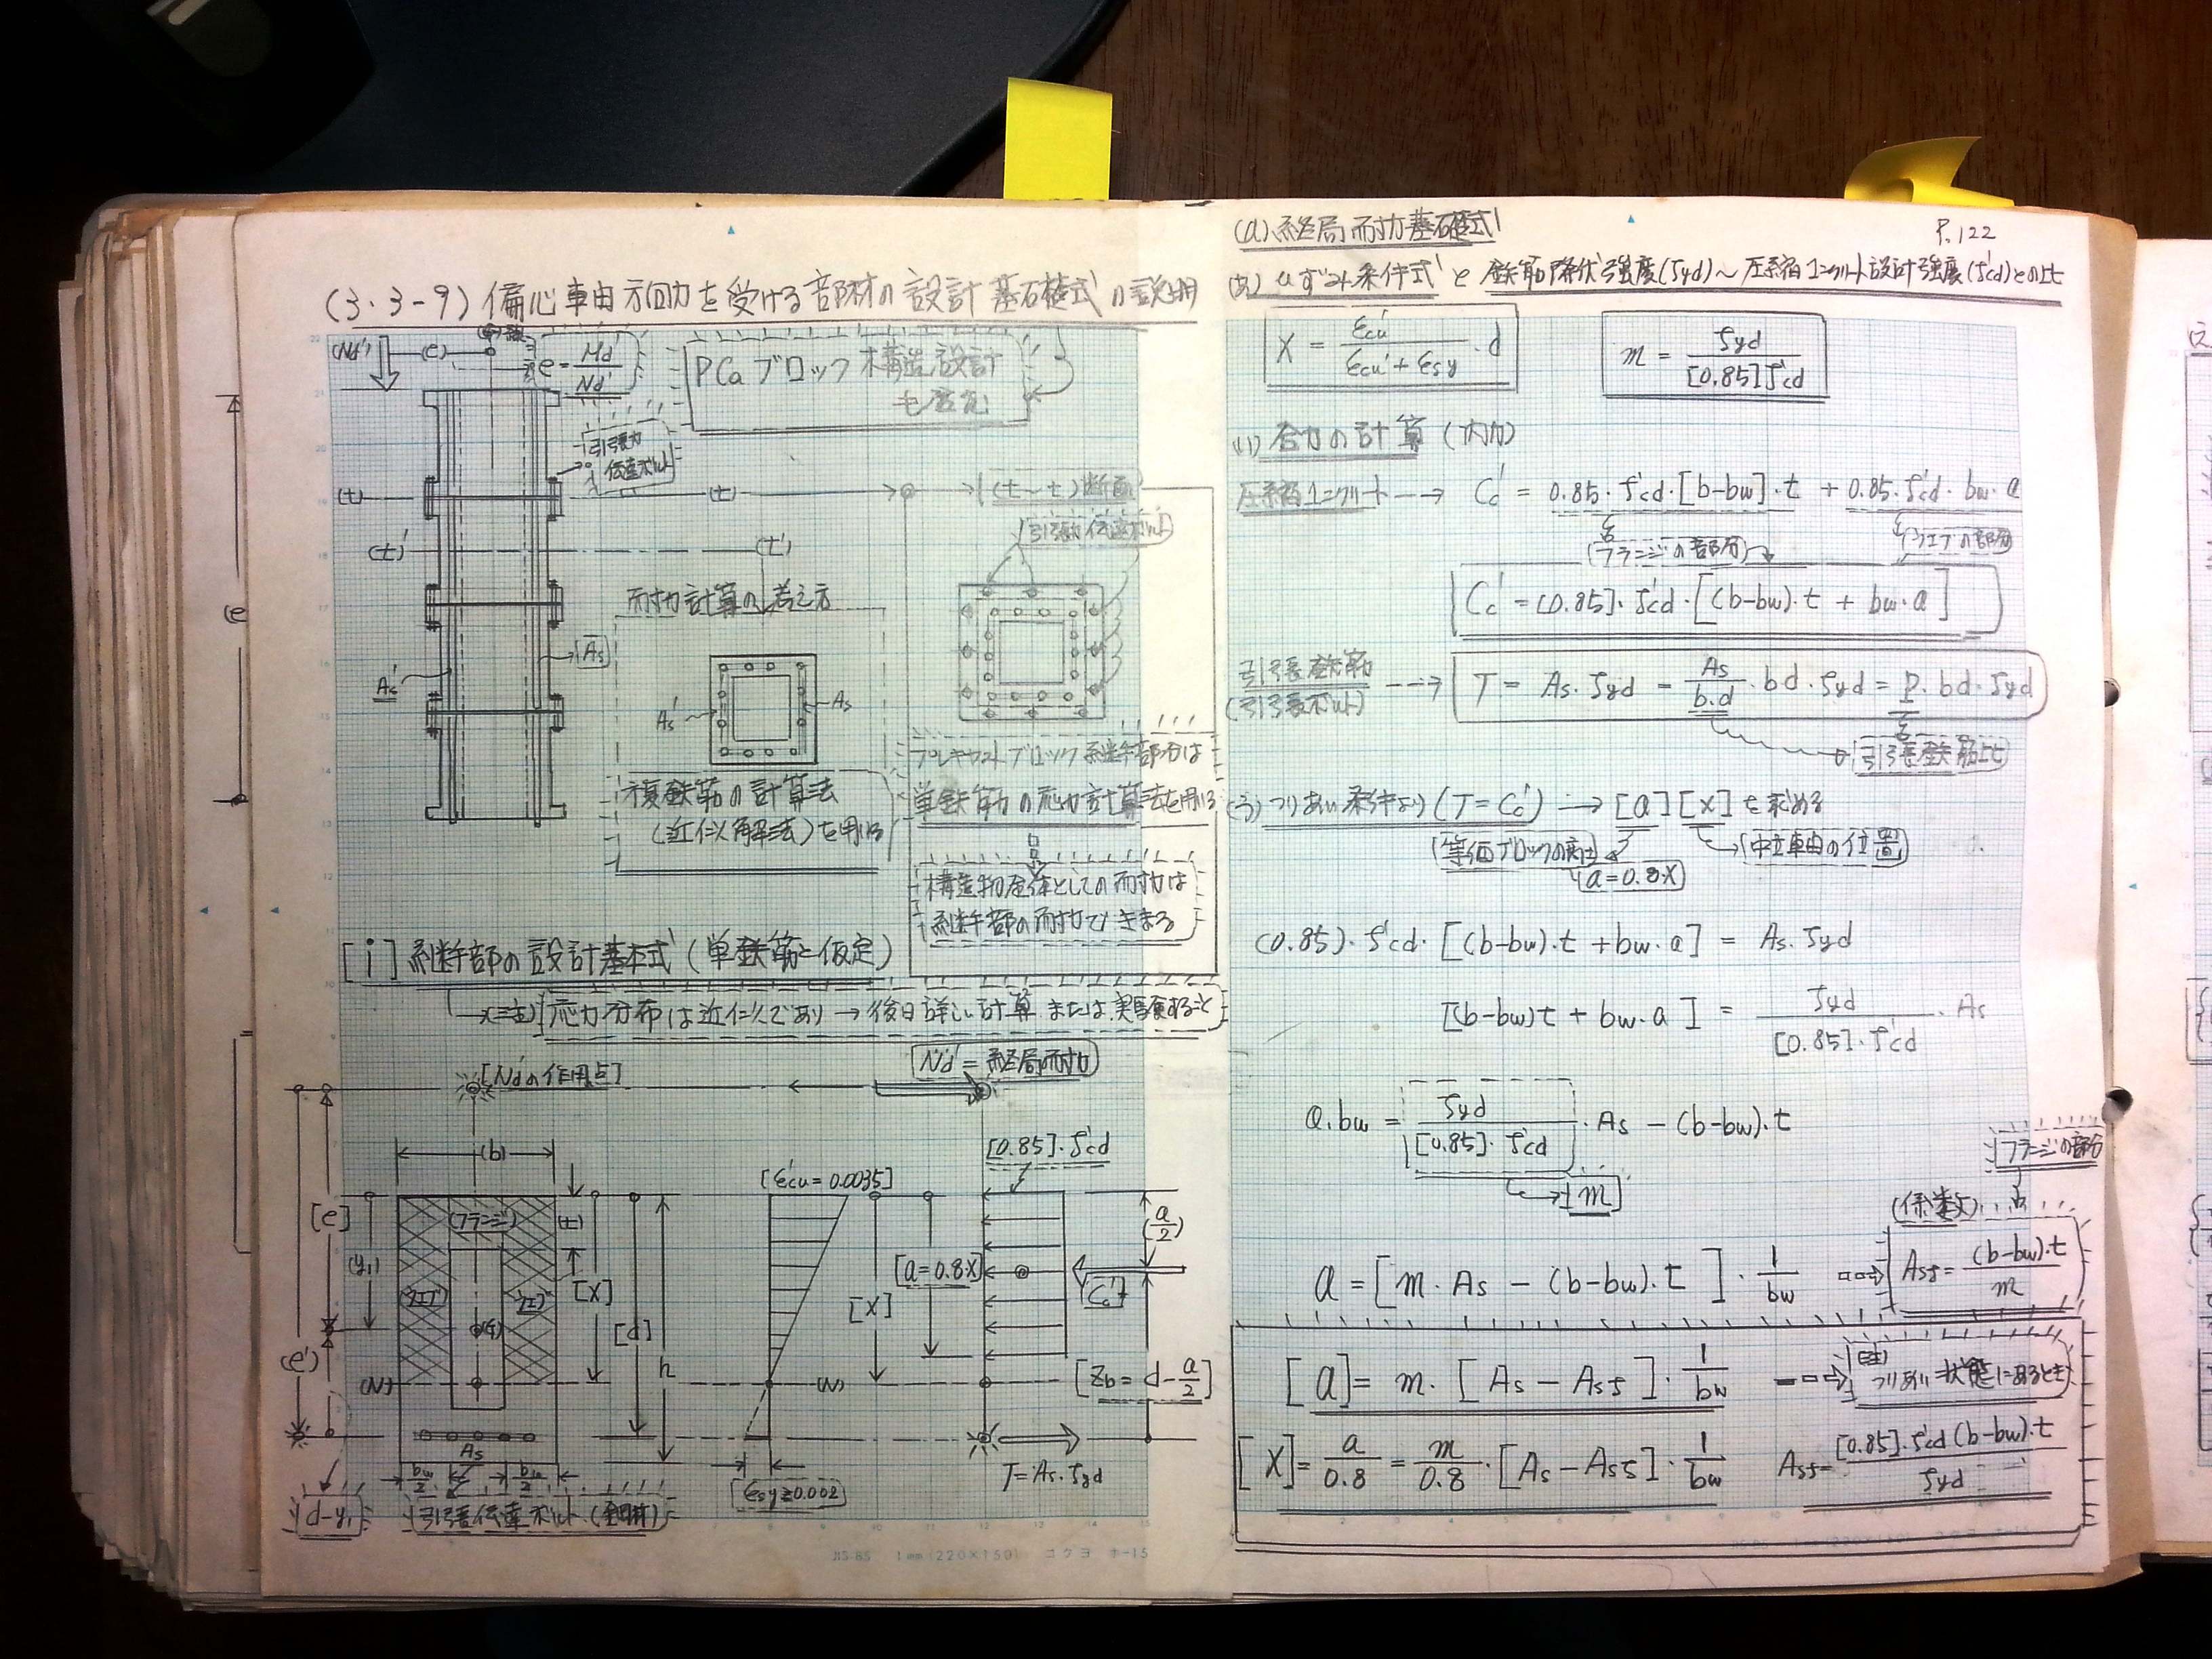 (3.3-9) 偏心軸方向力を受ける部材の設計基礎式の説明
(Nd') (e) e = Md' / Nd'
PCaブロック構造設計
引張力
伝達ボルト
(t) (t) (t〜t)断面
引張力伝達ボルト
(t)' (t')
耐力計算の考え方
As
As'
As' As
複鉄筋の計算法
(近似解法)を用いる
プレキャストブロック継手部分は
単鉄筋の応力計算法を用いる
構造物全体としての耐力は
継手部の耐力できまる
[i] 継手部の設計基本式(単鉄筋と仮定)
(注) 応力分布は近似であり → 後日詳しい計算または実験すること
[Nd'の作用点] Nd' = 終局耐力
(b) [0.85]・f'cd
[ε'cu = 0.0035]
[e] (y1) (フランジ) (t) [X] [d] h
ウェブ ウェブ
[a=0.8・X] [X] (a/2) Cc'
(e') (N) (N) [Zb = d - a/2]
As
bw/2 bw/2
[εsy≧0.002] T = As・fyd
d-y1 引張伝達ボルト(鋼棒)
JIS-B5 1mm(220×150) コクヨ ホ-15
P.122
(a) 終局耐力基礎式
(あ) ひずみ条件式と鉄筋降伏強度(fyd)〜圧縮コンクリート設計強度(f'cd)との比
X = ε'cu / (ε'cu + εsy)・d
m = fyd / [0.85]f'cd
(い) 合力の計算(内力)
圧縮コンクリート → Cc' = 0.85・f'cd・[b-bw]・t + 0.85・f'cd・bw・a
(フランジの部分) (ウェブの部分)
Cc' = [0.85]・f'cd・[(b-bw)・t + bw・a]
引張鉄筋
(引張ボルト) → T = As・fyd = As/(b・d)・bd・fyd = p・bd・fyd
引張鉄筋比
(う) つりあい条件より (T=Cc') → [a] [X] を求める
(等価ブロックの高さ) 中立軸の位置
(a=0.8・X)
(0.85)・f'cd・[(b-bw)・t + bw・a] = As・fyd
[(b-bw)t + bw・a] = fyd / ([0.85]・f'cd)・As
a・bw = fyd / ([0.85]・f'cd)・As - (b-bw)・t
m
フランジの部分
(係数)
a = [m・As - (b-bw)・t]・1/bw Asf = (b-bw)・t / m
[a] = m・[As - Asf]・1/bw (注) つりあい状態にあるとき
[X] = a/0.8 = m/0.8・[As - Asf]・1/bw Asf = [0.85]・f'cd(b-bw)・t / fyd